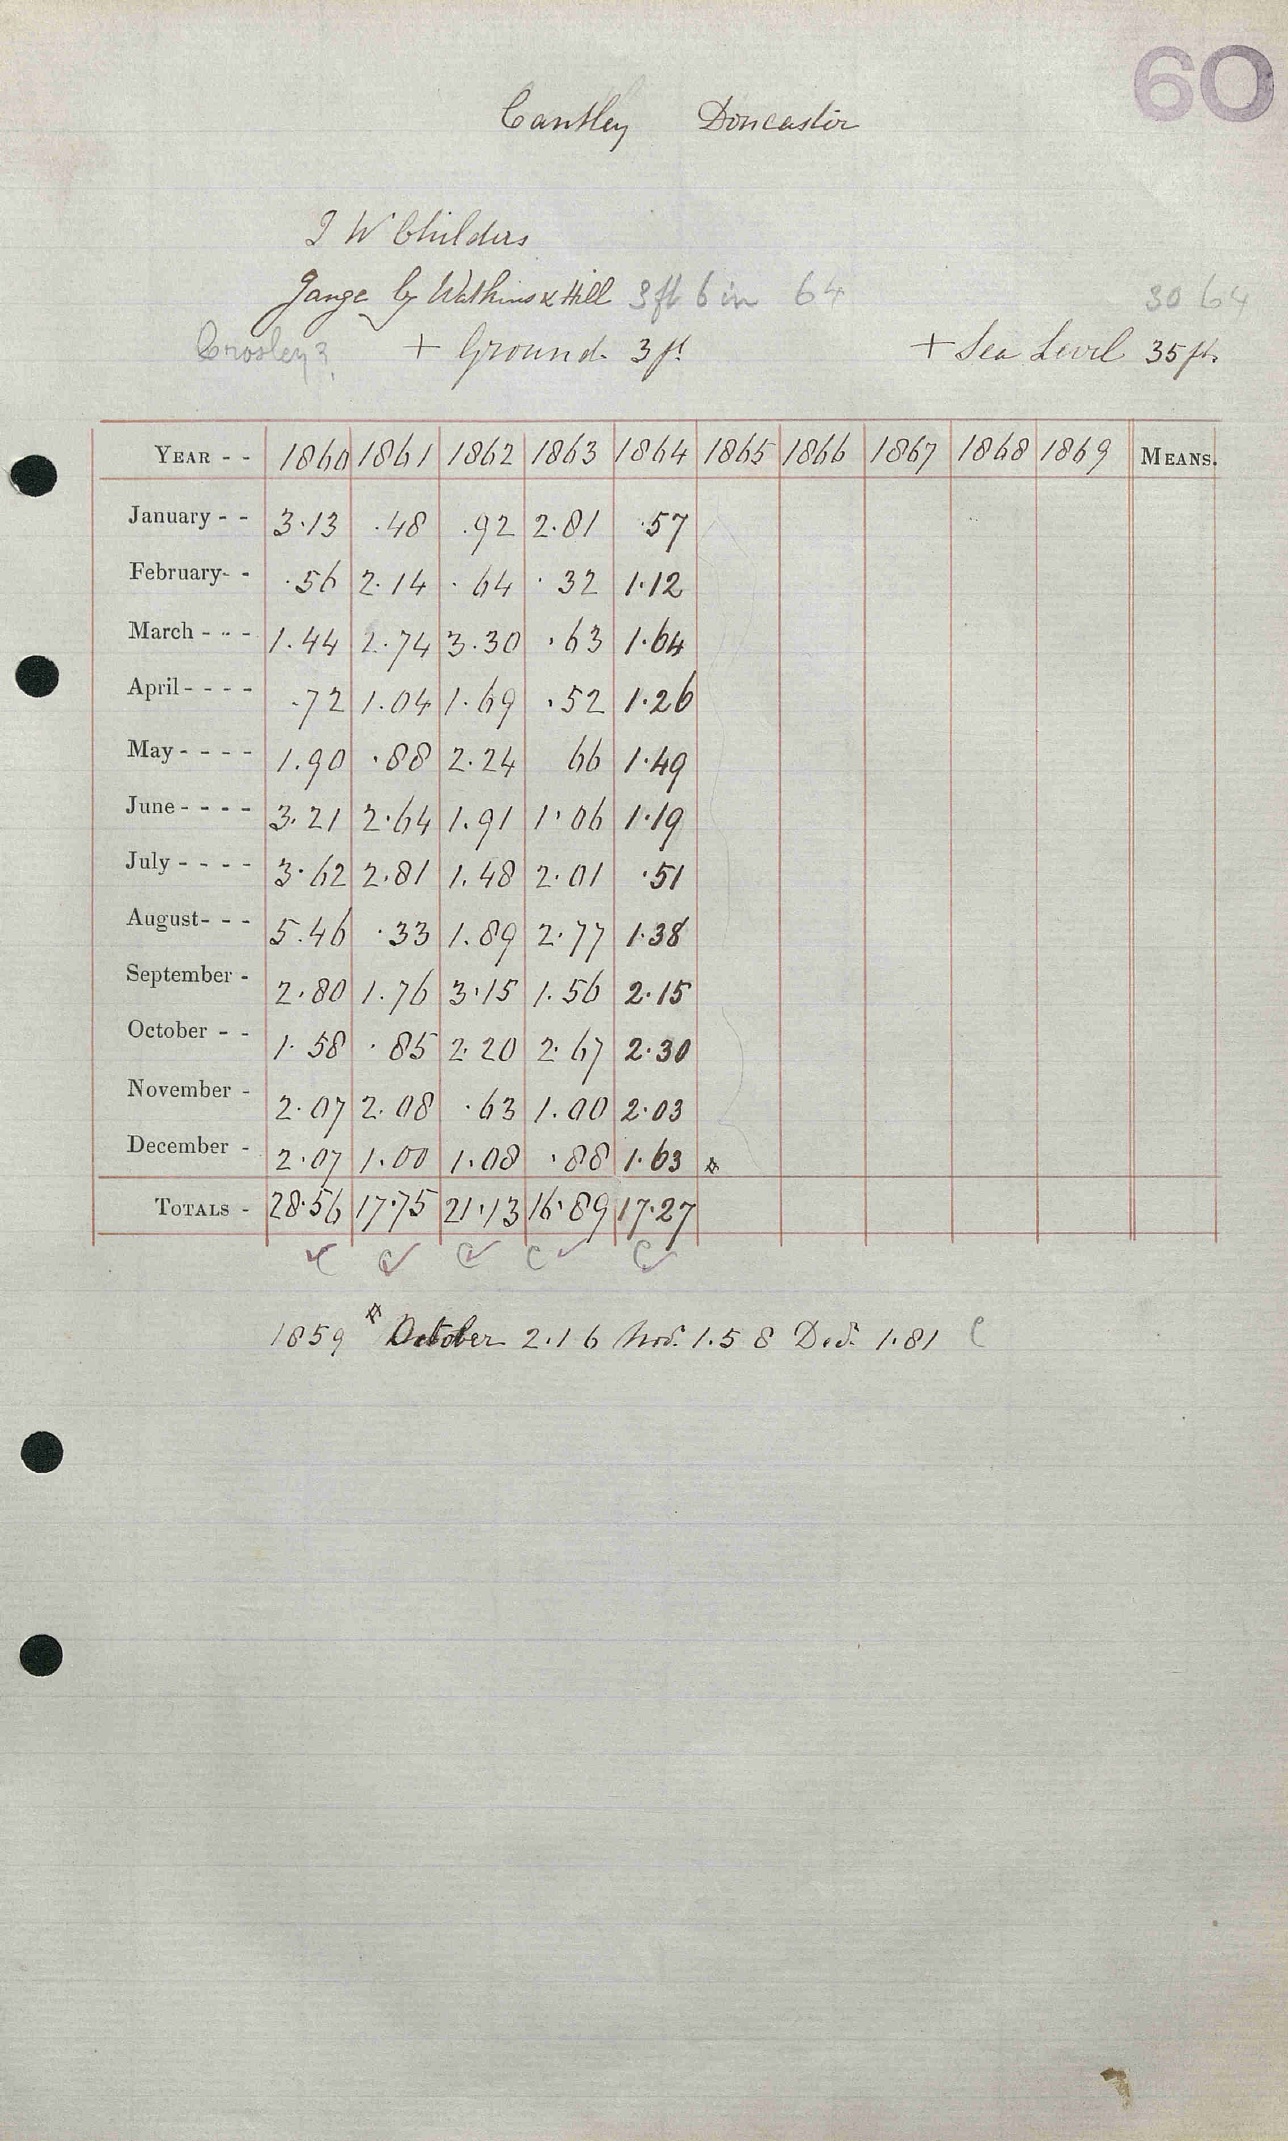 60
Cantley Doncaster
J W Childers
Gauge by Watkins & Hill 3 ft 6 in 64 30 64
Crosley? + Ground 3 ft + Sea Level 35 ft.
YEAR - - 1860 1861 1862 1863 1864 1865 1866 1867 1868 1869 MEANS.
January - - 3.13 .48 .92 2.81 .57
February- - .56 2.14 .64 .32 1.12
March - - - 1.44 2.74 3.30 .63 1.64
April - - - - .72 1.04 1.69 .52 1.26
May - - - - 1.90 .88 2.24 66 1.49
June - - - - 3.21 2.64 1.91 1.06 1.19
July - - - - 3.62 2.81 1.48 2.01 .51
August- - - 5.46 .33 1.89 2.77 1.38
September - 2.80 1.76 3.15 1.56 2.15
October - - 1.58 .85 2.20 2.67 2.30
November - 2.07 2.08 .63 1.00 2.03
December - 2.07 1.00 1.08 .88 1.63 *
TOTALS - 28.56 17.75 21.13 16.89 17.27
C C C C C
1859 * October 2.16 Nov. 1.58 Dec. 1.81 C